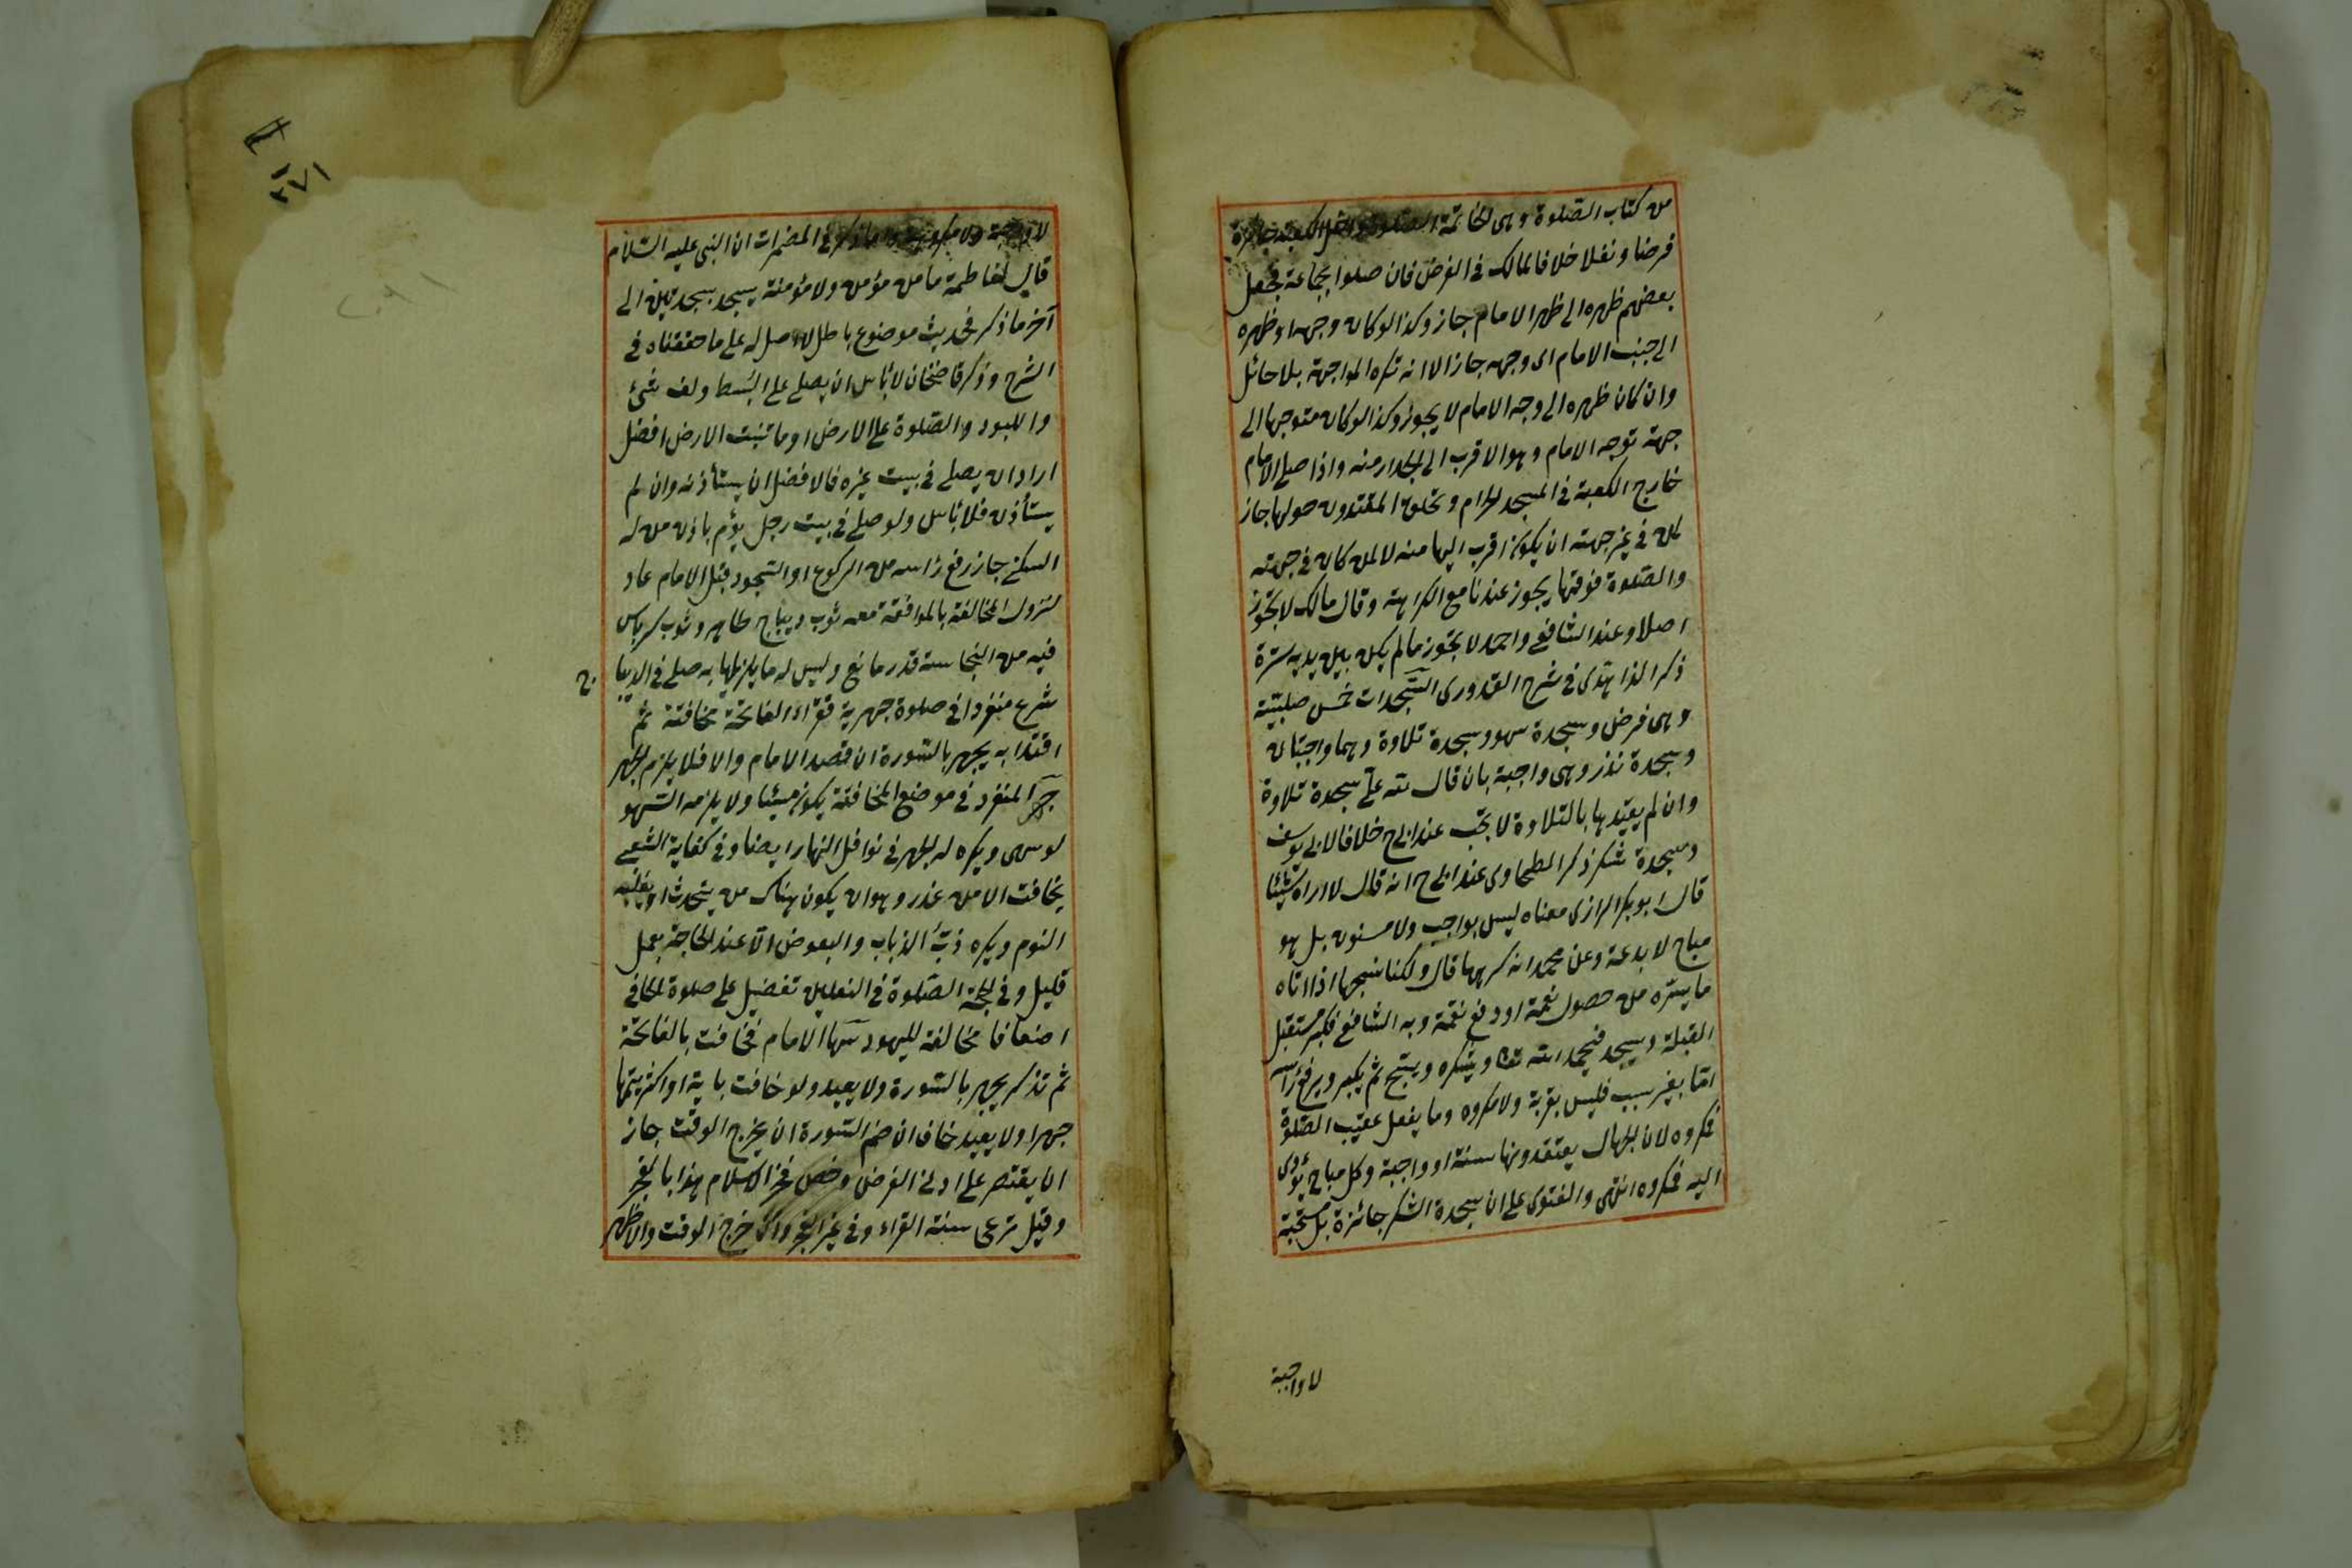 من كتاب الصلوة وهى الخاتمة الصلوة داخل الكعبة جائزة
فرضا ونفلا خلافا لمالك فى الفرض فان صلوا بجماعة فجعل
بعضهم ظهره الى ظهر الامام جاز وكذا لو كان وجهه او ظهره
الى جنب الامام اى وجهه جاز الا انه تكره المواجهة بلا حائل
وان كان ظهره الى وجه الامام لا يجوز وكذا لو كان متوجها الى
جهة توجه الامام وهو الاقرب الى الجدار منه واذا صلى الامام
خارج الكعبة فى المسجد الحرام وتحلق المقتدون حولها جاز
لمن فى غير جهته ان يكون اقرب اليها منه لا لمن كان فى جهته
والصلوة فوقها يجوز عندنا مع الكراهة وقال مالك لا تجوز
اصلا وعند الشافعى واحمد لا تجوز ما لم يكن بين يديه سترة
ذكر الزاهدى فى شرح القدورى السجدات خمس صلبيّة
وهى فرض وسجدة سهو وسجدة تلاوة وهما واجبتان
وسجدة نذر وهى واجبة بان قال لله علىّ سجدة تلاوة
وان لم يقيّدها بالتلاوة لا تجب عند ابى ح خلافا لابى يوسف
وسجدة شكر ذكر الطحاوى عند ابى ح انه قال لا اراه شيئا
قال ابو بكر الرازى معناه ليس بواجب ولا مسنون بل هو
مباح لا بدعة وعن محمد انه كرهها قال ولكنا نستحبها اذا اتاه
ما يسرّه من حصول نعمة او دفع نقمة وبه الشافعى فيكبر مستقبل
القبلة ويسجد فيحمد الله تعا ويشكره ويسبّح ثم يكبر ويرفع رأسه
امّا بغير سبب فليس بقربة ولا مكروه وما يفعل عقيب الصلوة
فمكروه لان الجهال يعتقدونها سنة او واجبة وكل مباح يؤدى
اليه فمكروه انتهى والفتوى على ان سجدة الشكر جائزة بل مستحبة
لا واجبة
لا واجبة ولا مكروهة واما ما ذكر فى المضمرات ان النبى عليه السلام
قال لفاطمة ما من مؤمن ولا مؤمنة يسجد سجدتين الى
آخر ما ذكر فحديث موضوع باطل لا اصل له على ما حققناه فى
الشرح وذكر قاضيخان لا باس ان يصلى على البسط ولف شئ
واللبود والصلوة على الارض او ما تنبت الارض افضل
اراد ان يصلى فى بيت غيره فالافضل ان يستأذنه وان لم
يستأذن فلا باس ولو صلى فى بيت رجل يؤم باذن من له
السكنى جاز رفع راسه من الركوع او السجود قبل الامام عاد
لتزول المخالفة بالموافقة معه ثوب ديباج طاهر وثوب كرباس
فيه من النجاسة قدر مانع وليس له ما يزيلها به صلى فى الديبا
ج
شرع منفردا فى صلوة جهرية فقراء الفاتحة مخافتة ثم
اقتدا به يجهر بالسورة ان قصد الامام والا فلا يلزم الجهر
جهر المنفرد فى موضع المخافتة يكون مسيئا ولا يلزمه السهو
لو سهى ويكره له الجهر فى نوافل النهار ايضا وفى كفاية الشعبى
يخافت الا من عذر وهو ان يكون هناك من يتحدث او يغلبه
النوم ويكره ذبّ الذباب والبعوض الّا عند الحاجة بعمل
قليل وفى الحجة الصلوة فى النعلين تفضيل على صلوة الحافى
اضعافا مخالفة لليهود سها الامام فخافت بالفاتحة
ثم تذكر يجهر بالسورة ولا يعيد ولو خافت باية او اكثر يتمها
جهرا ولا يعيد خاف ان ضم السورة ان يخرج الوقت جاز
ان يقتصر على ادنى الفرض وخص فخر الاسلام هذا بالفجر
وقيل ترعى سنة القراء وفى غير الفجر وان خرج الوقت والاظهر
٢٧١